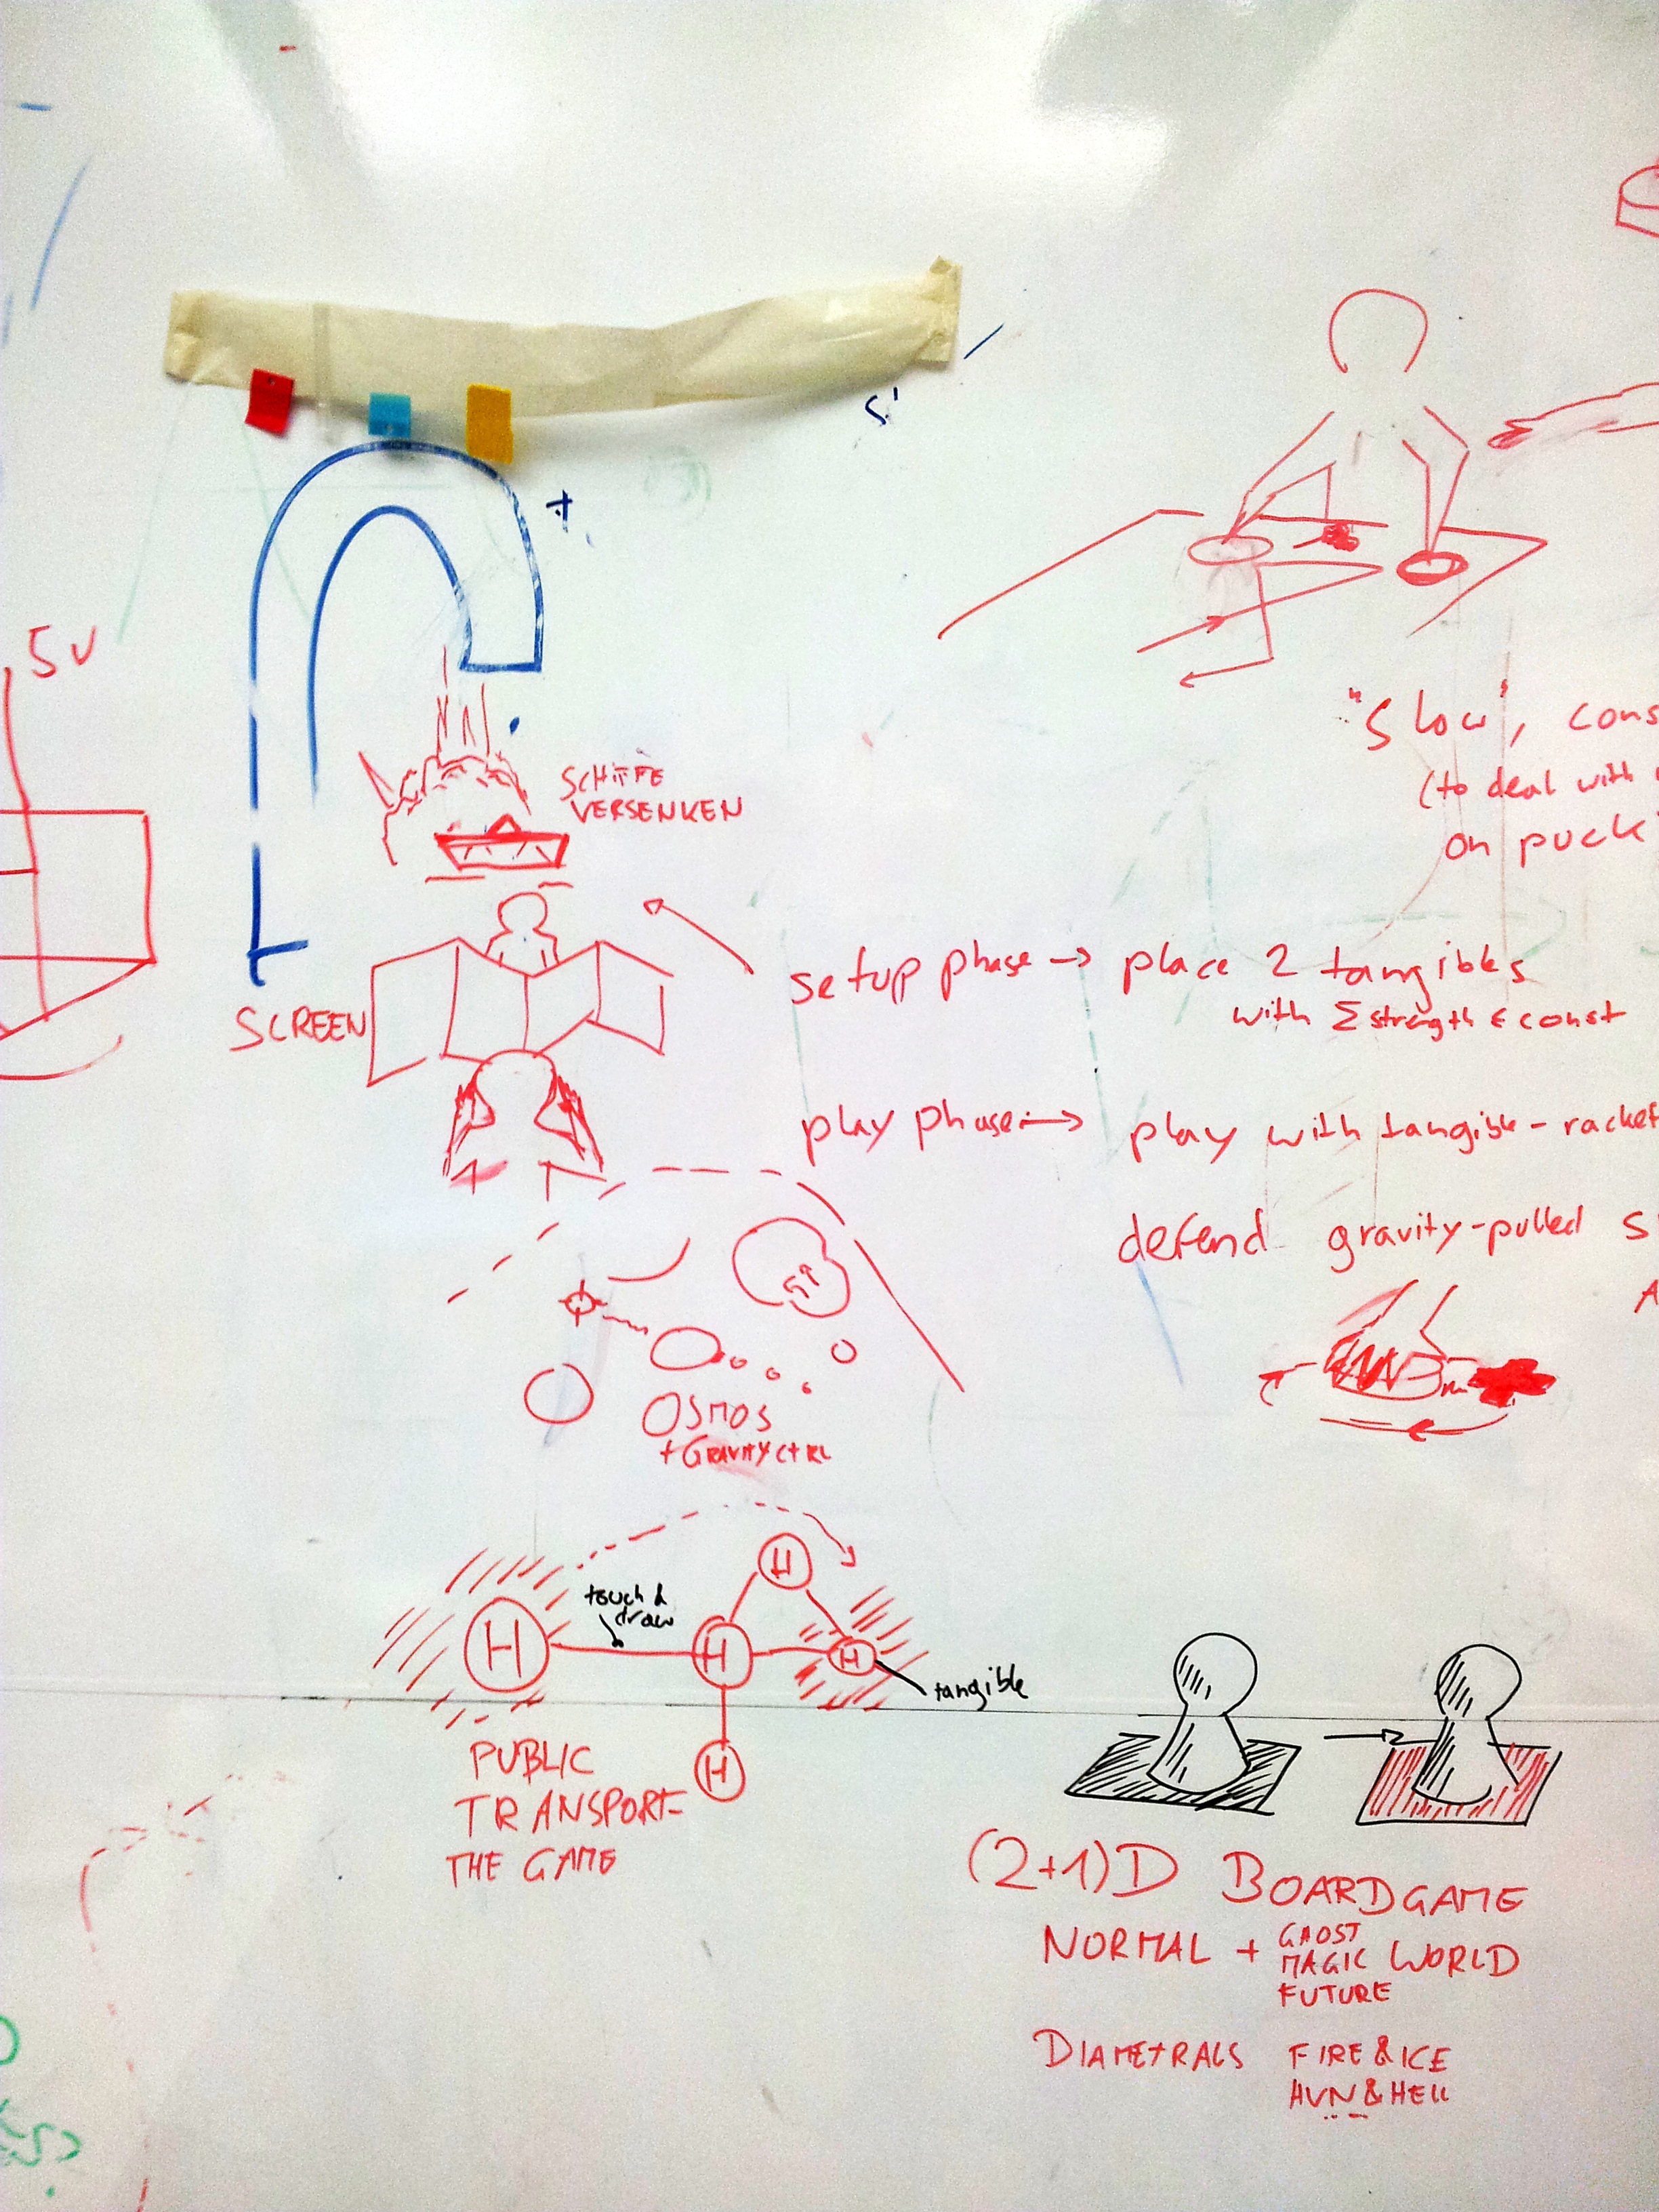 5V
SCHIFFE
VERSENKEN
"Slow", cons
(to deal with
on puck
SCREEN
setup phase → place 2 tangibles
with Σ strength ≤ const
play phase → play with tangible-racket
defend gravity-pulled
OSMOS
+ GRAVITY CTRL
H
touch &
draw
H
H
H
tangible
H
PUBLIC
TRANSPORT-
THE GAME
(2+1)D BOARDGAME
NORMAL + GHOST
MAGIC WORLD
FUTURE
DIAMETRALS FIRE & ICE
HVN & HELL